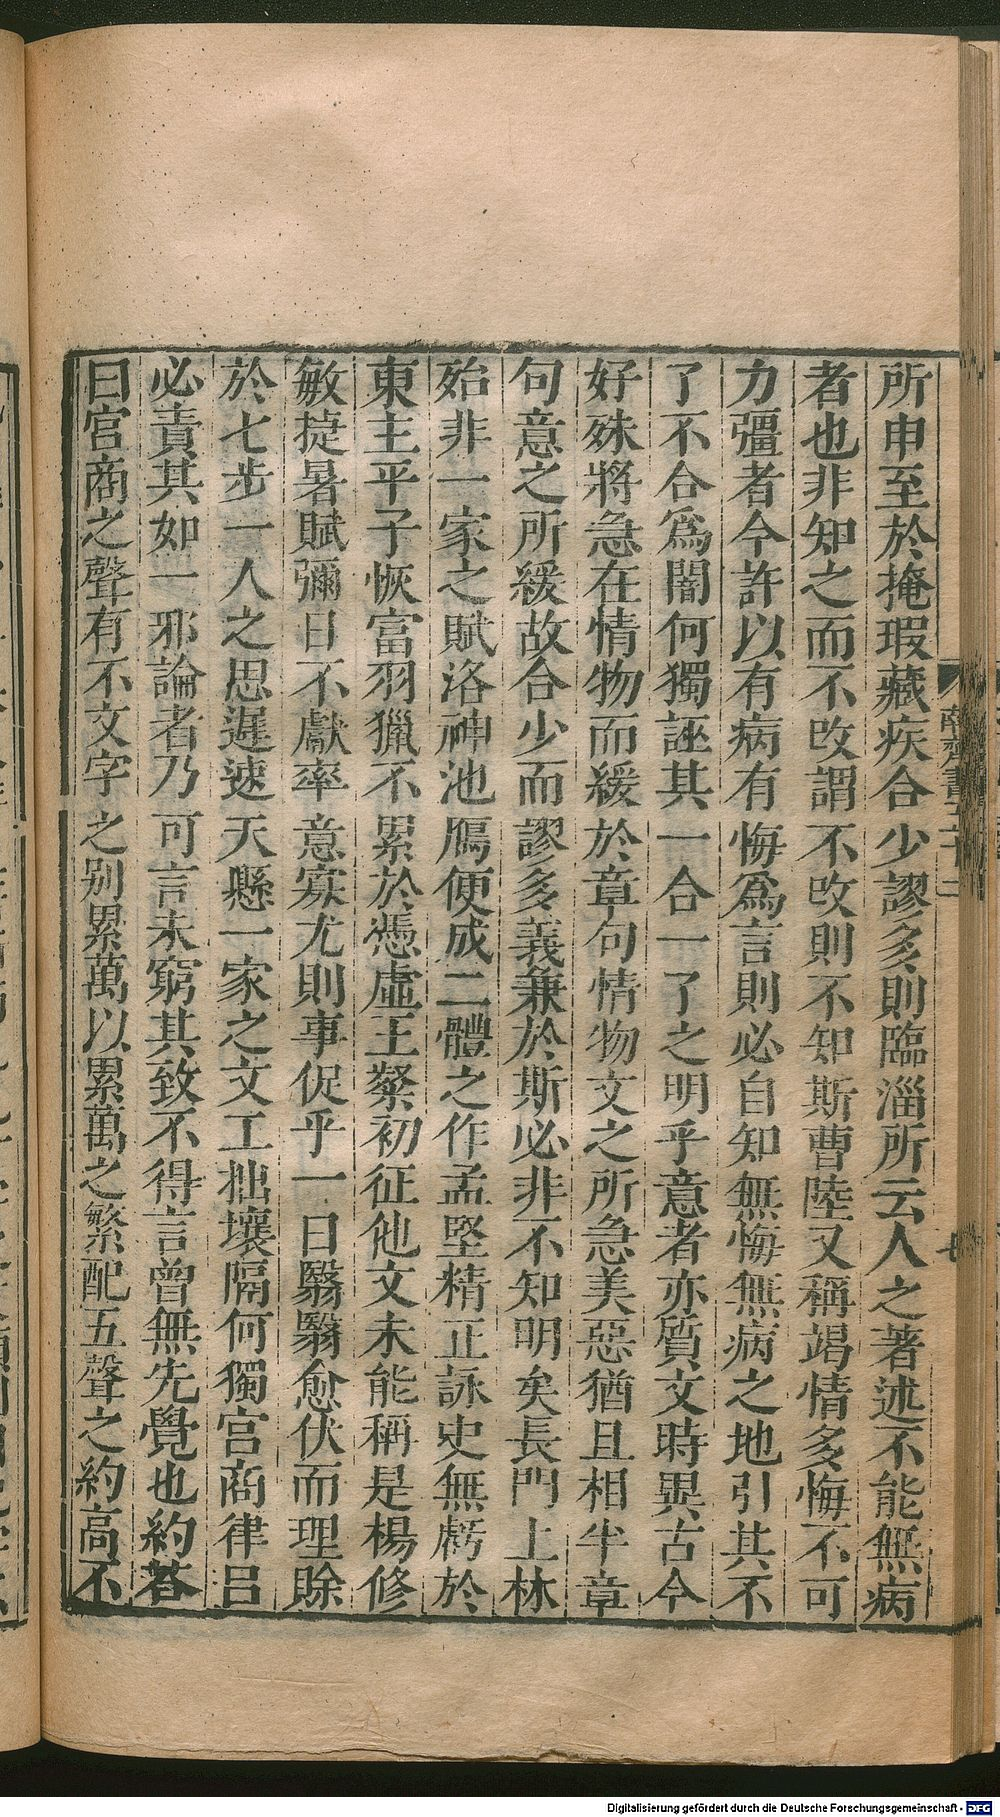 所申至於掩瑕藏疾合少謬多則臨淄所云人之著述不能無病
者也非知之而不改謂不改則不知斯曹陸又稱竭情多悔不可
力彊者今許以有病有悔爲言則必自知無悔無病之地引其不
了不合爲闇何獨誣其一合一了之明乎意者亦質文時異古今
好殊將急在情物而緩於章句情物文之所急美惡猶且相半章
句意之所緩故合少而謬多義兼於斯必非不知明矣長門上林
殆非一家之賦洛神池鴈便成二體之作孟堅精正詠史無虧於
東主平子恢富羽獵不累於憑虛王粲初征他文未能稱是楊修
敏捷暑賦彌日不獻率意寡尤則事促乎一日翳翳愈伏而理賖
於七步一人之思遲速天懸一家之文工拙壤隔何獨宮商律呂
必責其如一邪論者乃可言未窮其致不得言曾無先覺也約荅
曰宮商之聲有不文字之別累萬以累萬之繁配五聲之約高不
南齊書五十二
七
Digitalisierung gefördert durch die Deutsche Forschungsgemeinschaft - DFG